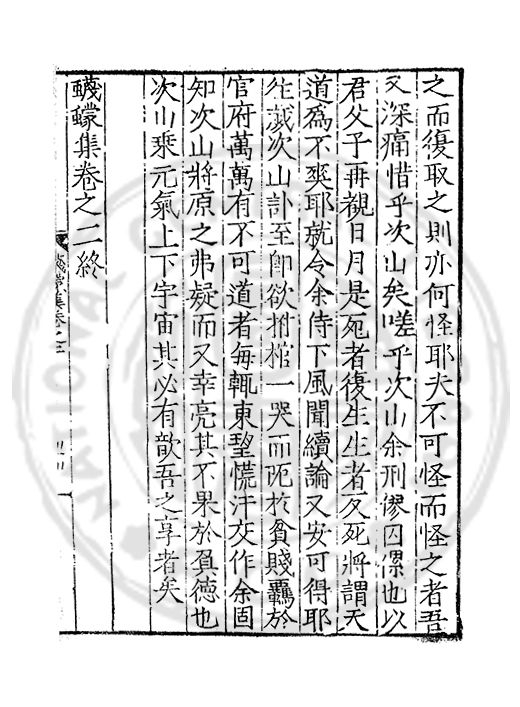 之而復取之則亦何怪耶夫不可怪而怪之者吾
又深痛惜乎次山矣嗟乎次山余刑僇囚傫也以
君父子再覩日月是死者復生生者反死將謂天
道爲不爽耶就令余侍下風聞續論又安可得耶
徃歲次山訃至卽欲拊棺一哭而阨於貧賤羈於
官府萬萬有不可道者每輒東望慌汗交作余固
知次山將原之弗疑而又幸亮其不果於負德也
次山乘元氣上下宇宙其必有歆吾之享者矣
蠛蠓集卷之二終
蠛蠓集卷之二